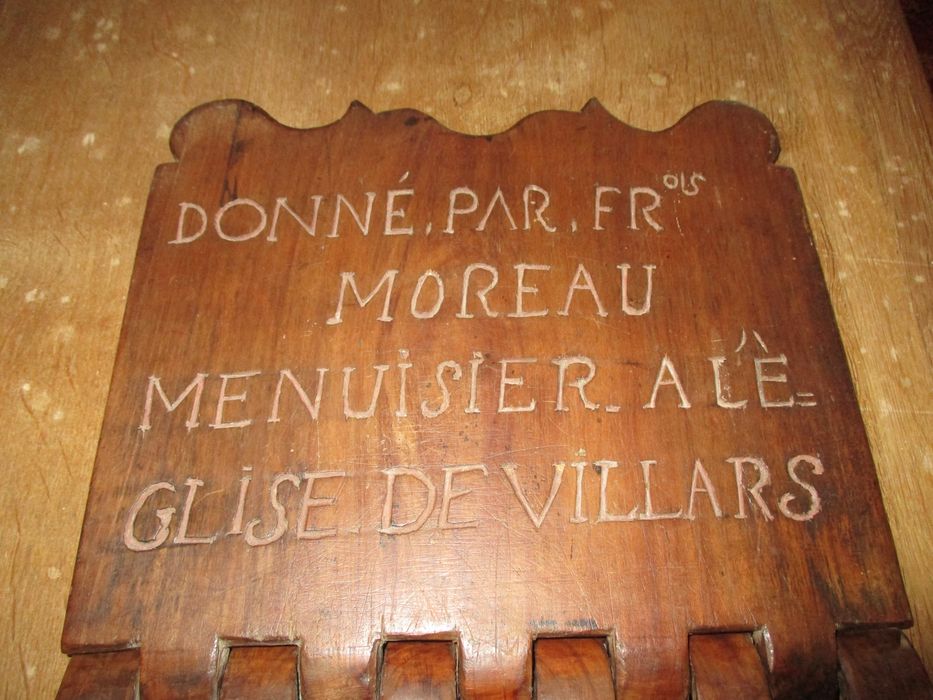 DONNÉ.PAR.FR^OIS
MOREAU
MENUISIER. A L'È=
GLISE DE VILLARS